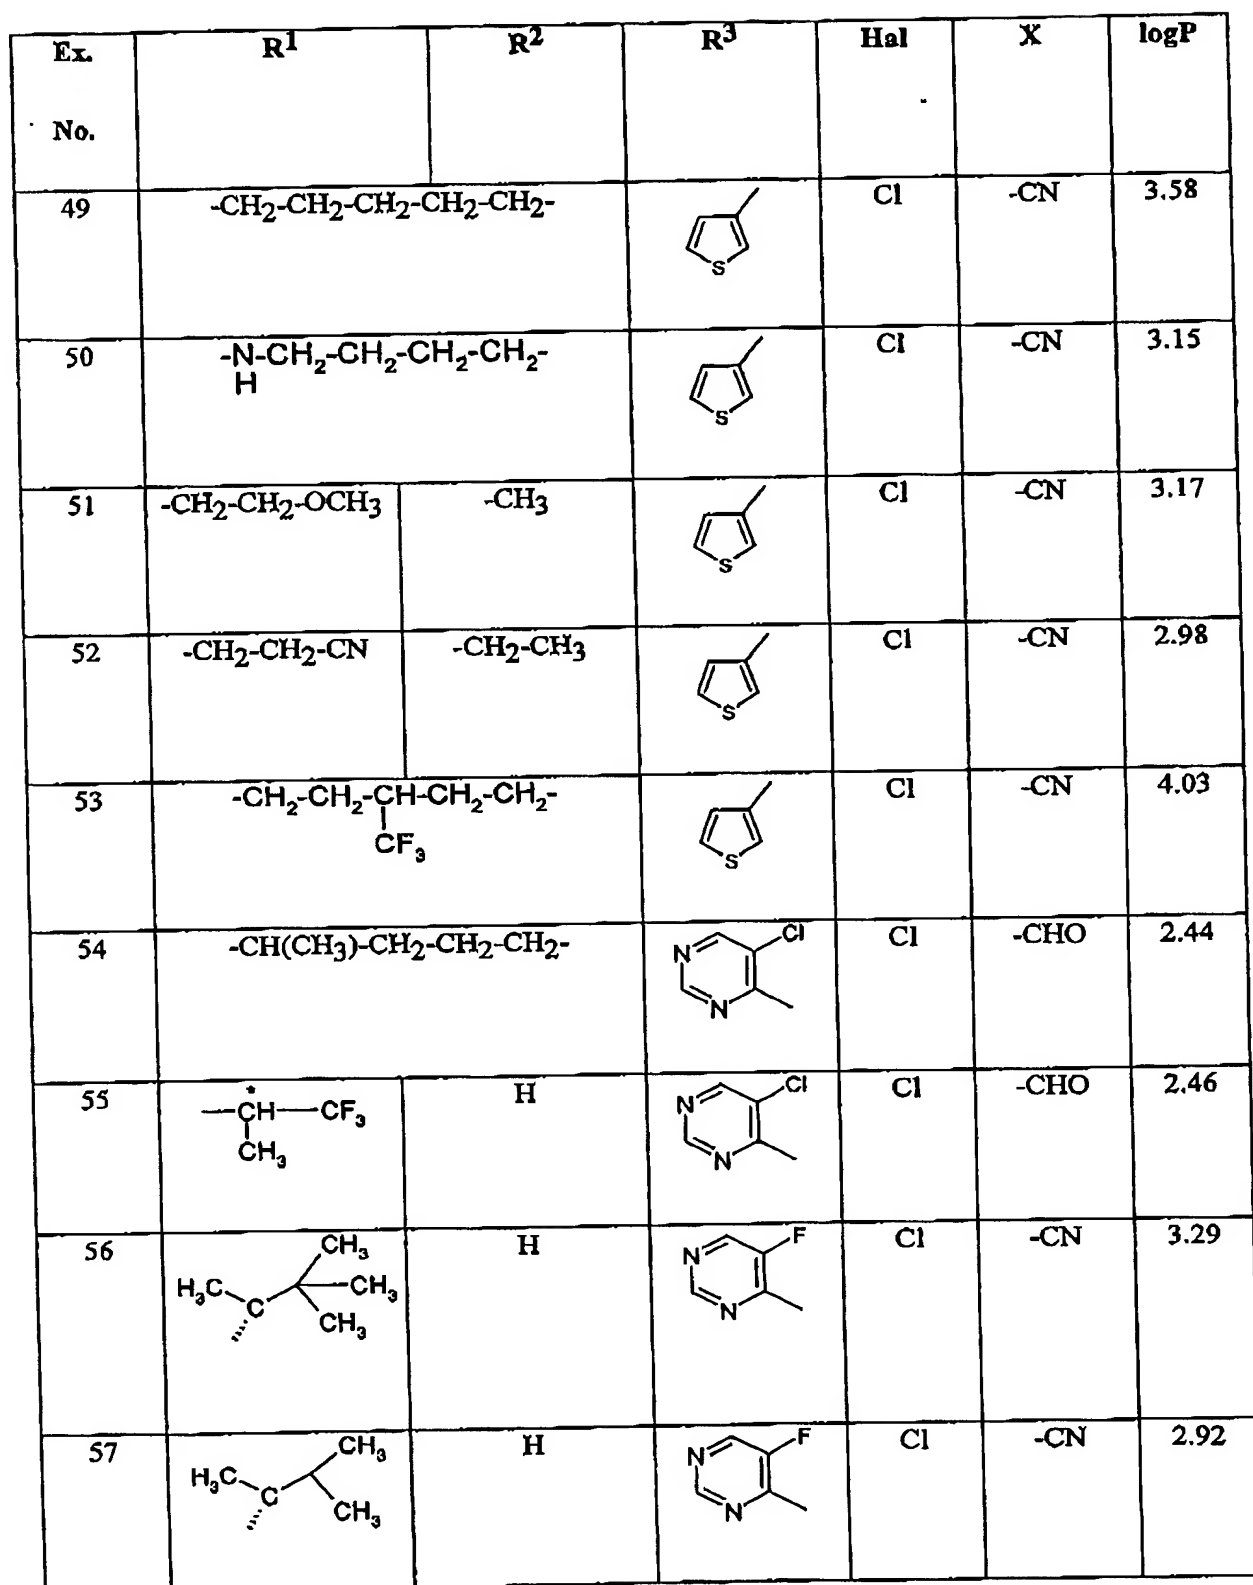 Ex. No. R1 R2 R3 Hal X logP
49 -CH2-CH2-CH2-CH2-CH2- S Cl -CN 3.58
50 -N-CH2-CH2-CH2-CH2- S Cl -CN 3.15
H
51 -CH2-CH2-OCH3 -CH3 S Cl -CN 3.17
52 -CH2-CH2-CN -CH2-CH3 S Cl -CN 2.98
53 -CH2-CH2-CH-CH2-CH2- S Cl -CN 4.03
CF3
54 -CH(CH3)-CH2-CH2-CH2- N N Cl Cl -CHO 2.44
55 * CH CF3 H N N Cl Cl -CHO 2.46
CH3
56 H3C C CH3 CH3 CH3 H N N F Cl -CN 3.29
57 H3C C CH3 CH3 H N N F Cl -CN 2.92